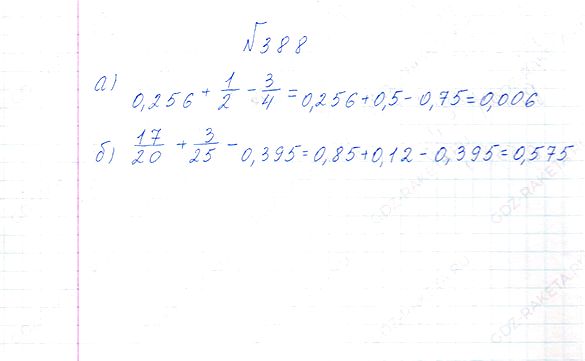 №388
а) 0,256 + 1/2 - 3/4 = 0,256 + 0,5 - 0,75 = 0,006
б) 17/20 + 3/25 - 0,395 = 0,85 + 0,12 - 0,395 = 0,575
GDZ-RAKETA.RU
GDZ-RAKETA.RU